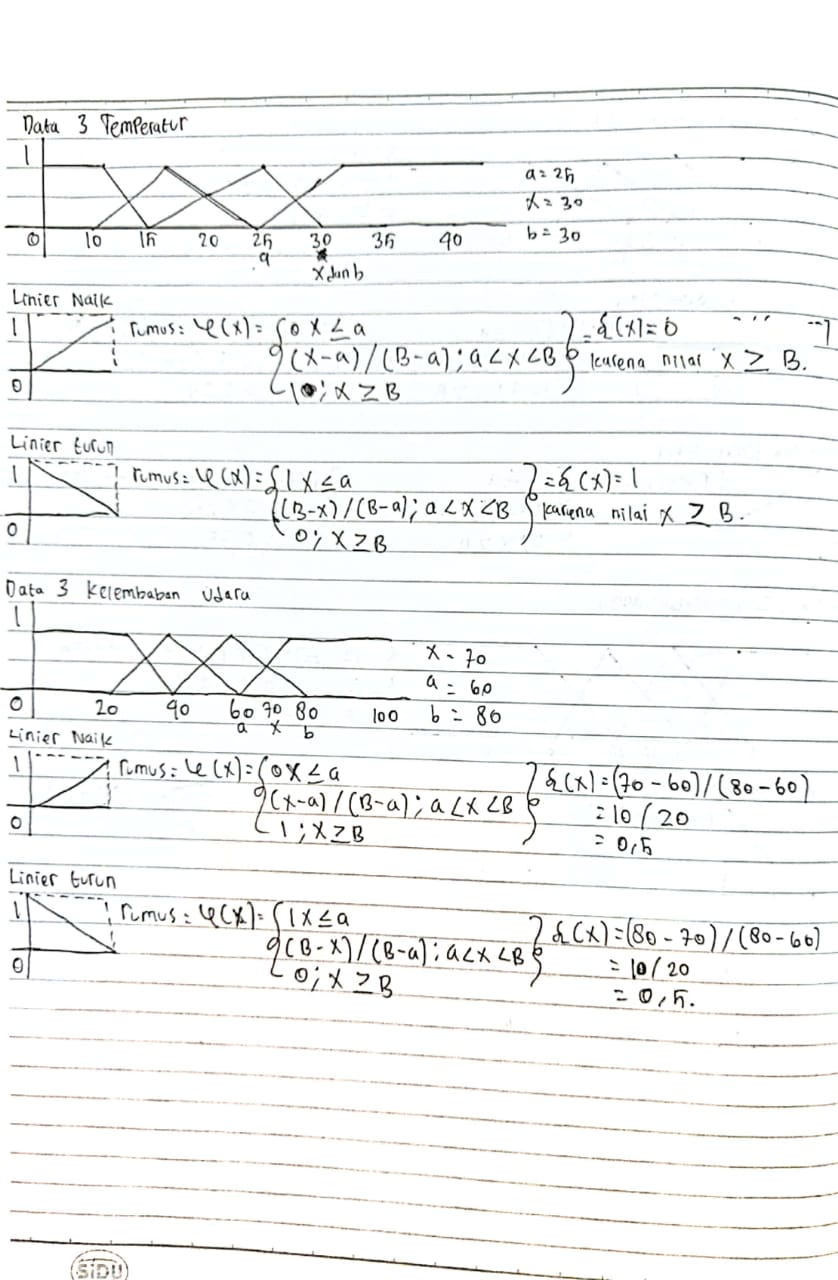 Data 3 Temperatur
1
0 10 15 20 25 30 35 40
a
x dan b
a = 25
x = 30
b = 30
Linier Naik
1
0
rumus: φ(x) = { 0 x ≤ a
(x-a) / (B-a); a < x < B
1 ; x ≥ B
= φ(x) = 0
karena nilai x ≥ B.
Linier turun
1
0
rumus: φ(x) = { 1 x ≤ a
(B-x) / (B-a); a < x < B
0; x ≥ B
= φ(x) = 1
karena nilai x ≥ B.
Data 3 Kelembaban Udara
1
0 20 40 60 70 80 100
a x b
x - 70
a = 60
b = 80
Linier Naik
1
0
rumus: φ(x) = { 0 x ≤ a
(x-a) / (B-a); a < x < B
1 ; x ≥ B
φ(x) = (70 - 60) / (80 - 60)
= 10 / 20
= 0,5
Linier turun
1
0
rumus: φ(x) = { 1 x ≤ a
(B-x) / (B-a); a < x < B
0; x ≥ B
φ(x) = (80 - 70) / (80 - 60)
= 10 / 20
= 0,5.
SiDU